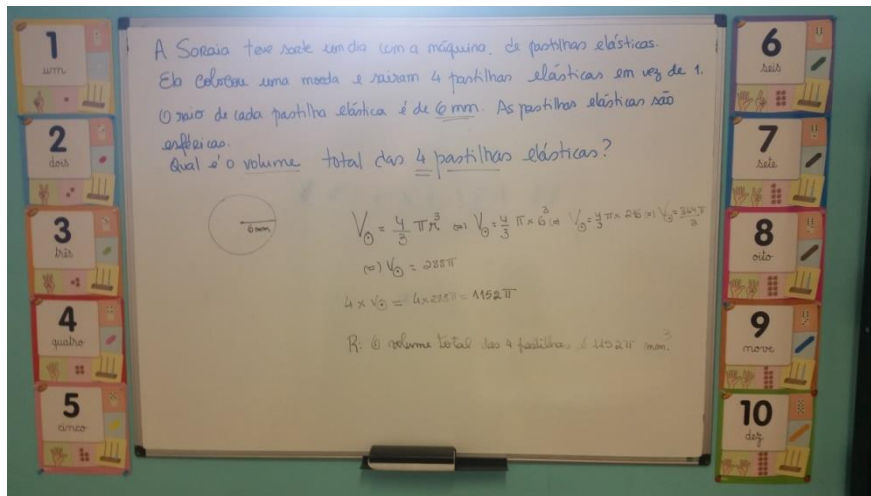 A Soraia teve sorte um dia com a máquina de pastilhas elásticas.
Ela colocou uma moeda e sairam 4 pastilhas elásticas em vez de 1.
O raio de cada pastilha elástica é de 6 mm. As pastilhas elásticas são
esféricas.
Qual é o volume total das 4 pastilhas elásticas?
6 mm
V = 4/3 π r³ (=) V = 4/3 π × 6³ (=) V = 4/3 π × 216 (=) V =
(=) V = 288π
4 × V = 4 × 288π = 1152π
R: O volume total das 4 pastilhas é 1152π mm³.
1
um
2
dois
3
três
4
quatro
5
cinco
6
seis
7
sete
8
oito
9
nove
10
dez